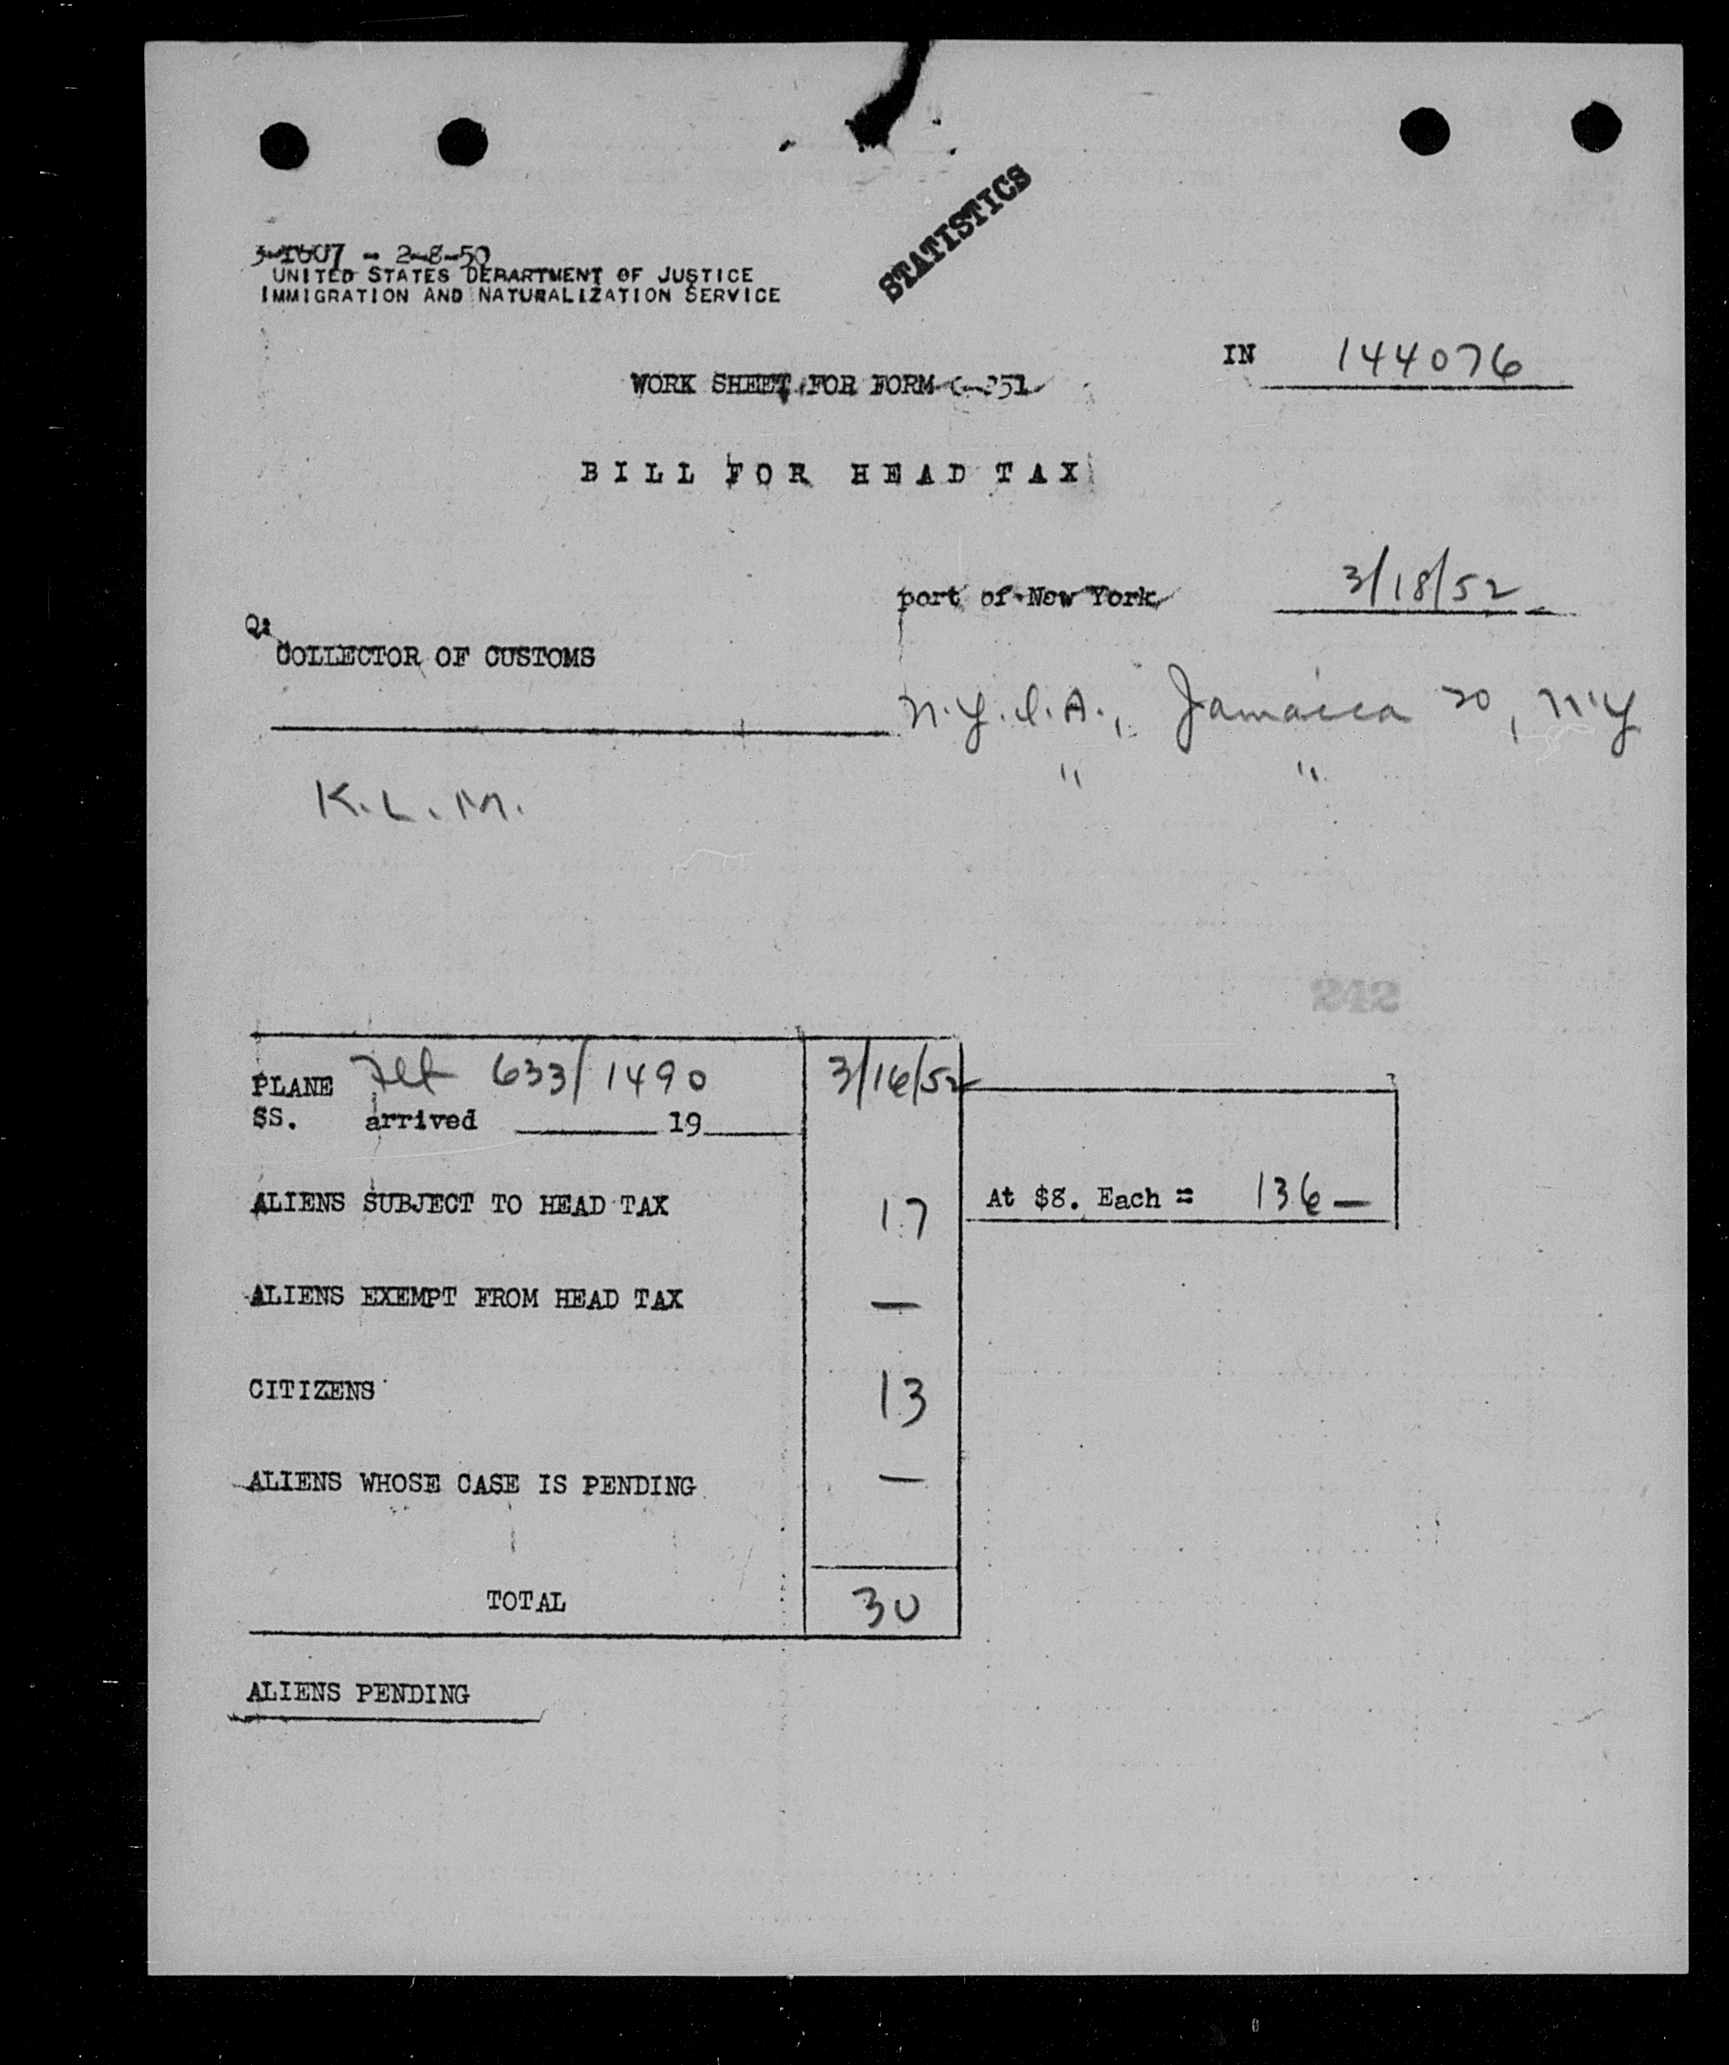 STATISTICS
3-1607 - 2-8-50
UNITED STATES DEPARTMENT OF JUSTICE
IMMIGRATION AND NATURALIZATION SERVICE
IN 144076
WORK SHEET FOR FORM 51
BILL FOR HEAD TAX
port of New York 3/18/52
COLLECTOR OF CUSTOMS
N.Y.I.A., Jamaica 20, N.Y
K.L.M. " "
242
PLANE Flt 633/1490 3/16/52
SS. arrived 19
ALIENS SUBJECT TO HEAD TAX 17 At $8. Each = 136 —
ALIENS EXEMPT FROM HEAD TAX —
CITIZENS 13
ALIENS WHOSE CASE IS PENDING —
TOTAL 30
ALIENS PENDING